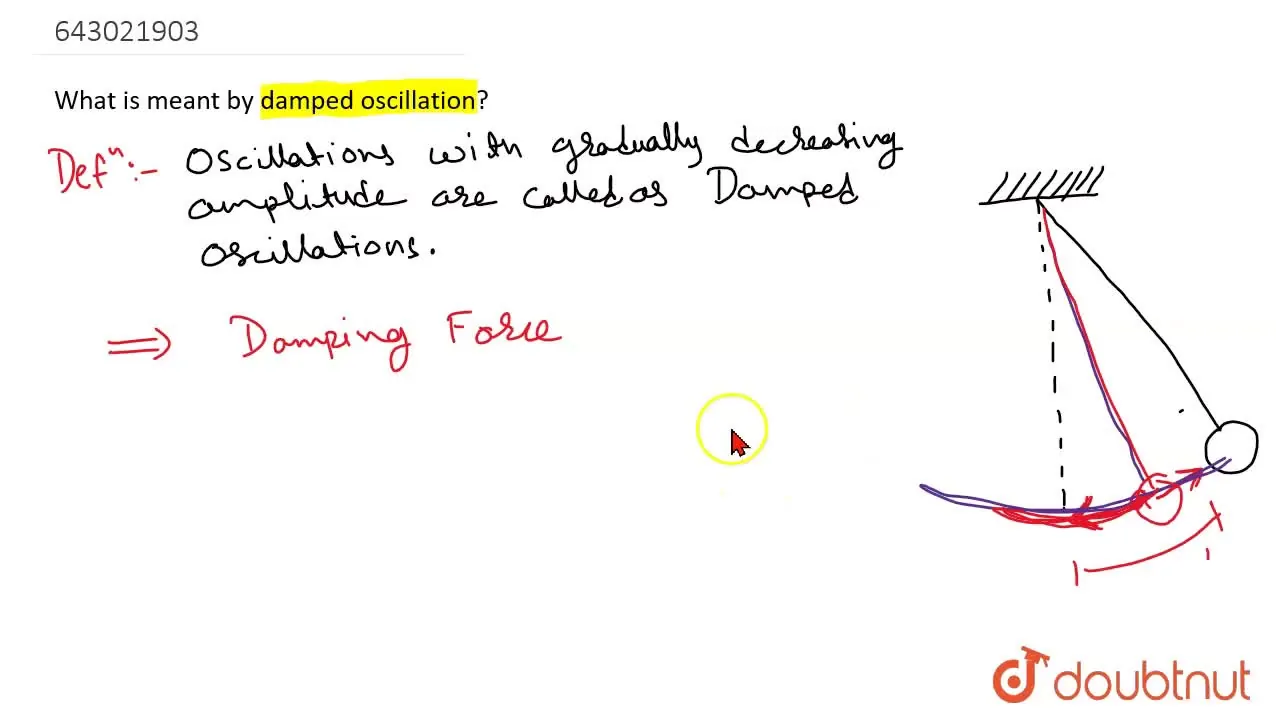 643021903
What is meant by damped oscillation?
Defⁿ:- Oscillations with gradually decreasing
amplitude are called as Damped
oscillations.
⇒ Damping Force
doubtnut